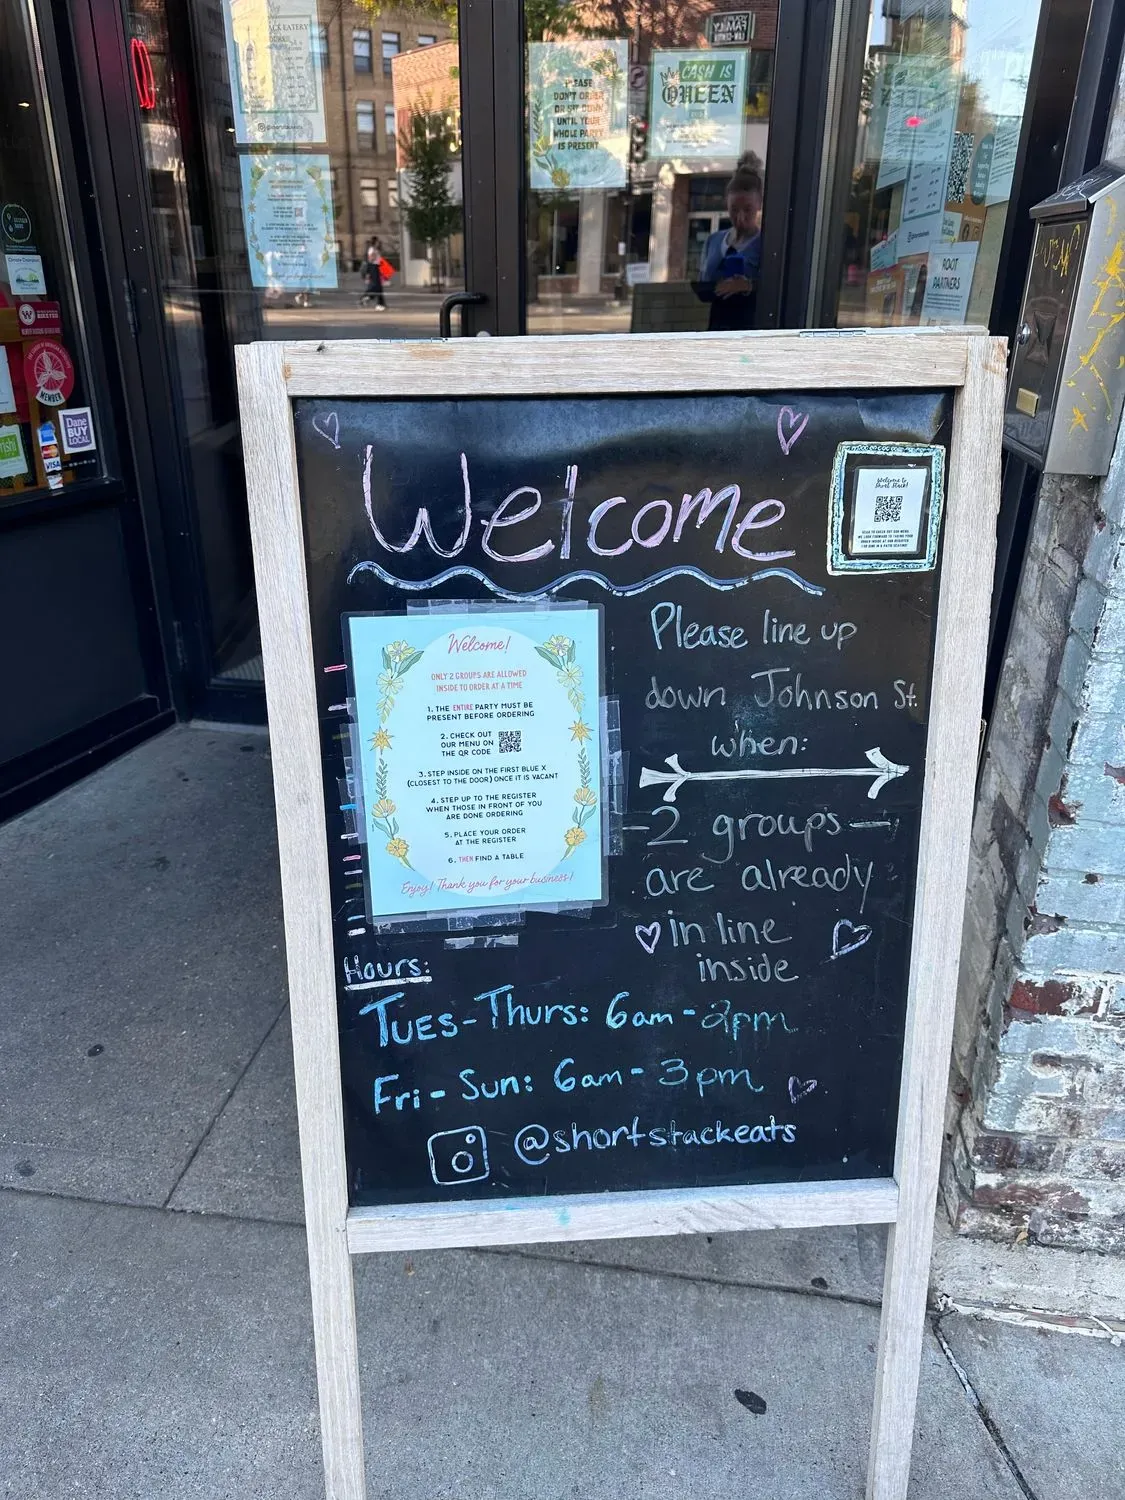 PLEASE
DON'T ORDER
OR SIT DOWN
UNTIL YOUR
WHOLE PARTY
IS PRESENT
CASH IS
QUEEN
ROOT
PARTNERS
MEMBER
Dane
BUY
LOCAL
VISA
Welcome
Welcome to
Short Stack!
Welcome!
ONLY 2 GROUPS ARE ALLOWED
INSIDE TO ORDER AT A TIME
1. THE ENTIRE PARTY MUST BE
PRESENT BEFORE ORDERING
2. CHECK OUT
OUR MENU ON
THE QR CODE
3. STEP INSIDE ON THE FIRST BLUE X
(CLOSEST TO THE DOOR) ONCE IT IS VACANT
4. STEP UP TO THE REGISTER
WHEN THOSE IN FRONT OF YOU
ARE DONE ORDERING
5. PLACE YOUR ORDER
AT THE REGISTER
6. THEN FIND A TABLE
Enjoy! Thank you for your business!
Please line up
down Johnson St.
when:
-2 groups-
are already
in line
inside
Hours:
TUES-Thurs: 6am-2pm
Fri-Sun: 6am-3pm
@shortstackeats